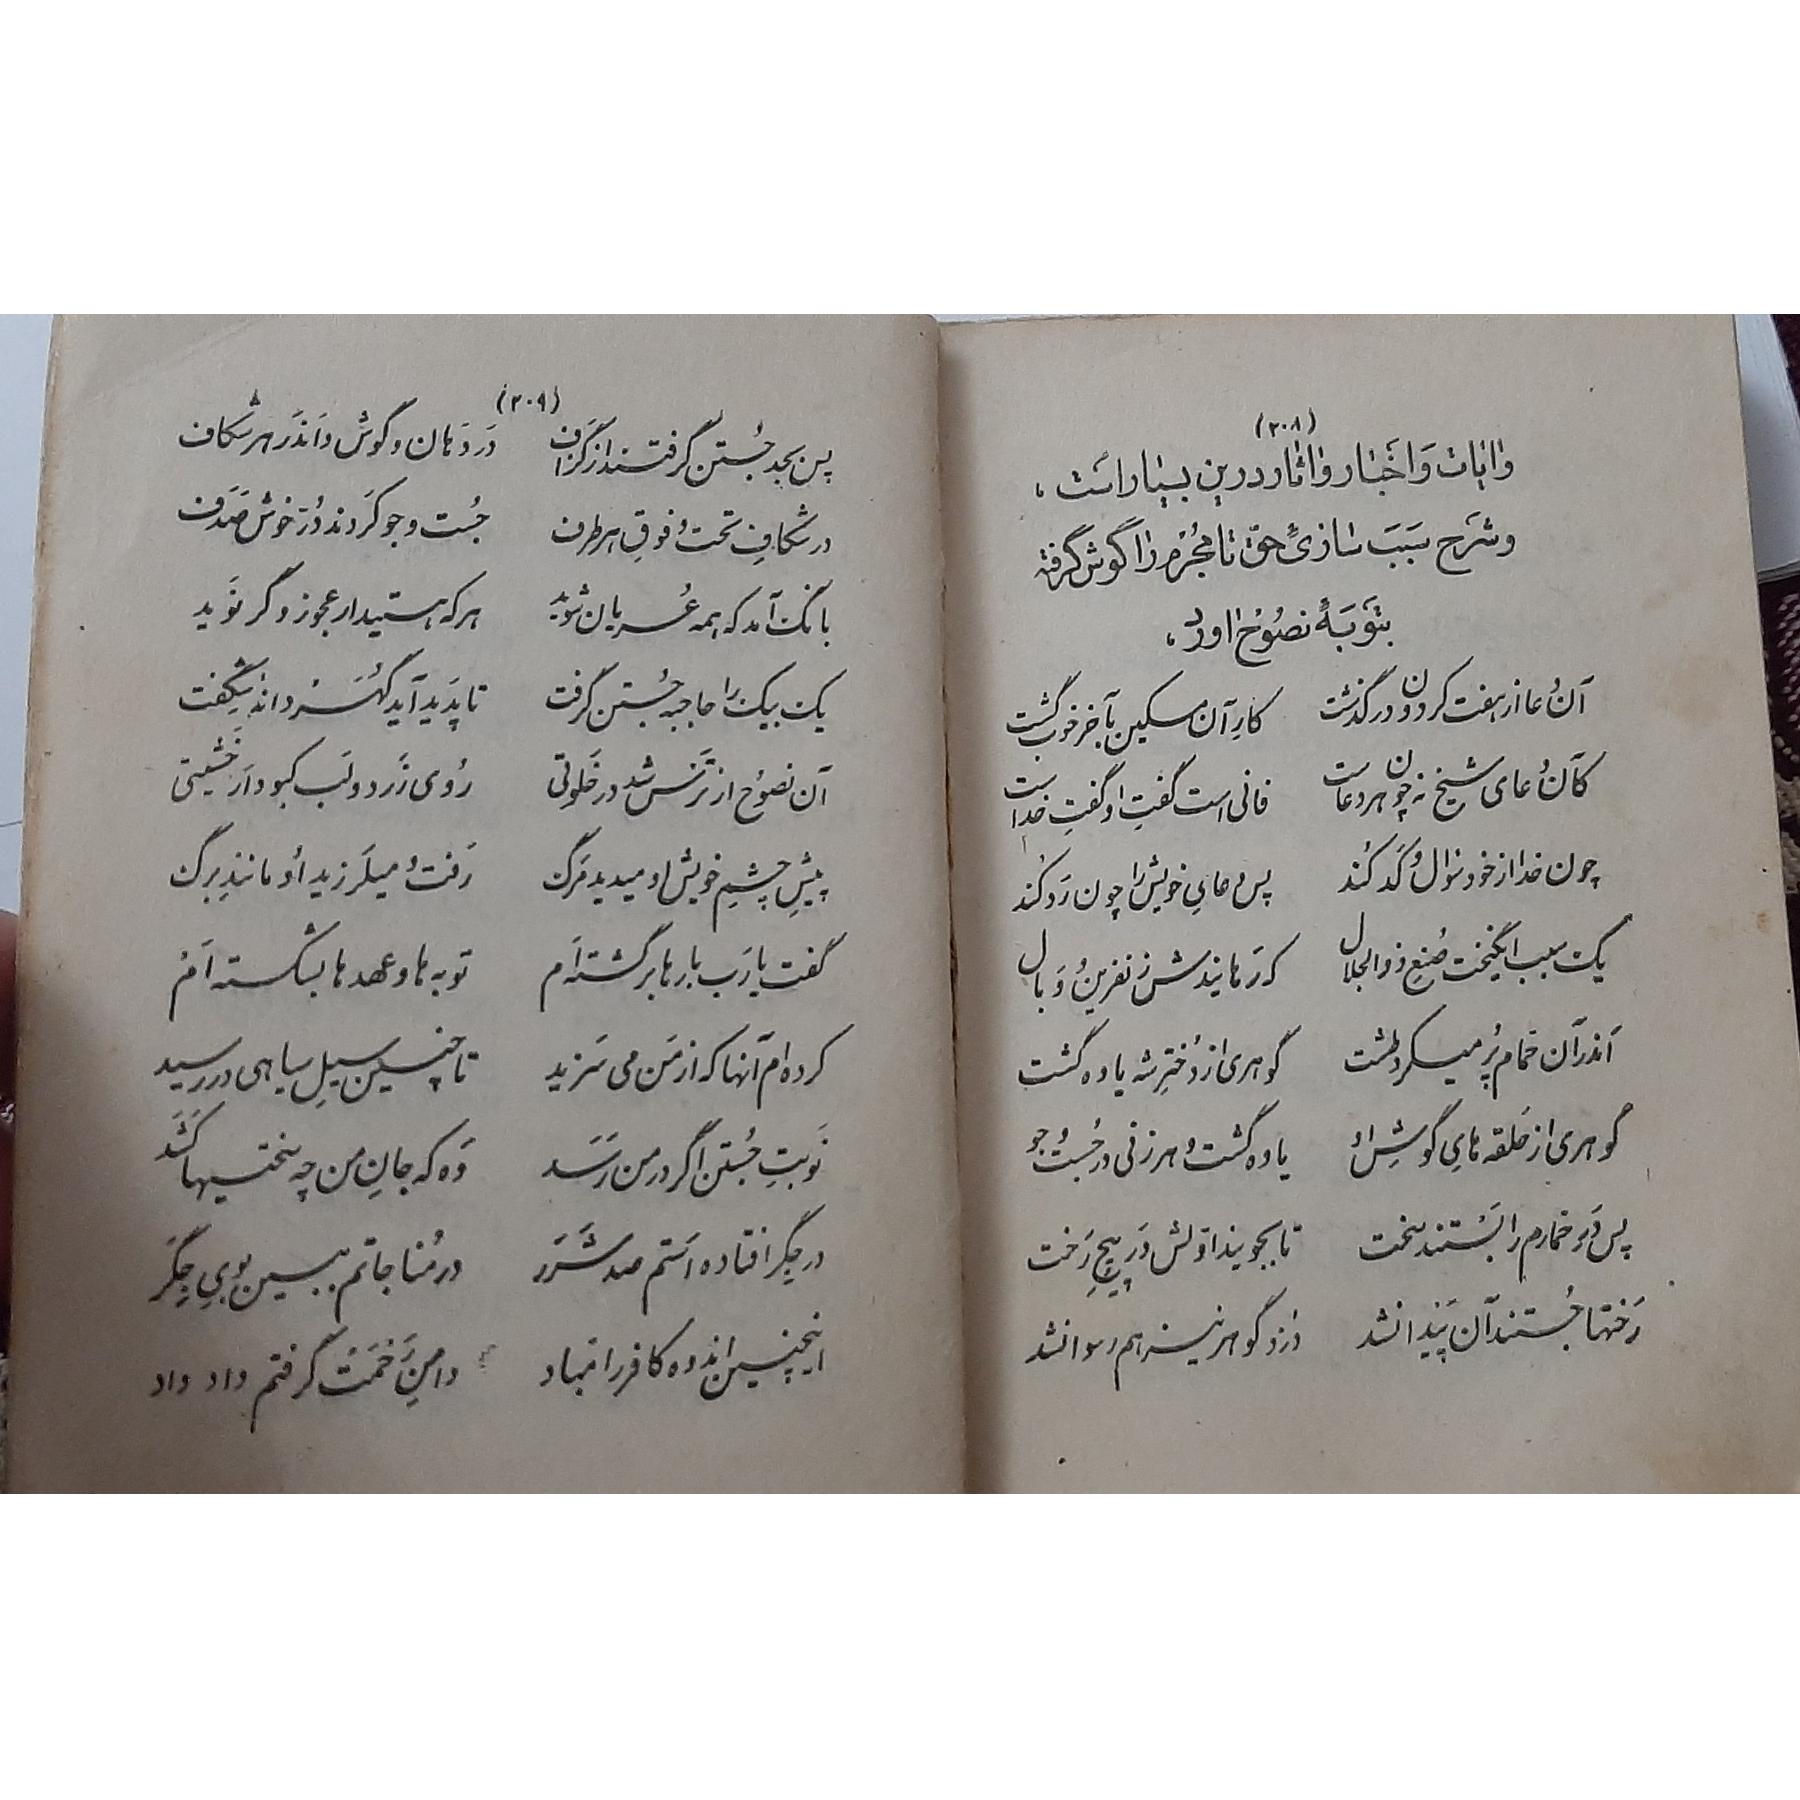 (۲۰۸)
وایات و اخبار و اثار درین بسیار است،
و شرح سبب سازیً حق تا مجرم را گوش گرفته
بتوبهً نصوح اورد،
آن دعا از هفت گردون در گذشت کارِ آن مسکین بآخر خوب گشت
کان دعای شیخ نه چون هر دعاست فانی است گفتِ او گفتِ خداست
چون خدا از خود سؤال و کد کند پس دعایِ خویش را چون رد کند
یک سبب انگیخت صنعِ ذوالجلال که رهانیدش ز نفرین و وبال
اندر آن حمام پُر میکرد طشت گوهری از دخترِ شه یاوه گشت
گوهری از حلقه هایِ گوشِ او یاوه گشت و هر زنی در جست و جو
پس درِ حمام را بستند سخت تا بجویند اولش در پیچِ رخت
رختها جستند آن پیدا نشد دزد گوهر نیز هم رسوا نشد
(۲۰۹)
پس بجد جُستن گرفتند از گزاف در دهان و گوش و اندر هر شکاف
در شکافِ تحت و فوقِ هر طرف جُست و جو کردند دُر خوش صدف
بانگ آمد که همه عُریان شوید هر که هستید ار عجوز و گر نوید
یک بیک را حاجبه جُستن گرفت تا پدید آید گهر دانه شگفت
آن نصوح از ترس شد در خلوتی رُوی زرد و لب کبود از خشیتی
پیشِ چشمِ خویش او میدید مرگ رفت و میلرزید او مانندِ برگ
گفت یا رب بارها بر گشته ام توبه ها و عهدها بشکسته ام
کرده ام آنها که از من می سزید تا چنین سیلِ سیاهی در رسید
نوبتِ جُستن اگر در من رسد وه که جانِ من چه سختیها کشد
در جگر افتاده استم صد شرر در مُناجاتم ببین بویِ جگر
اینچنین اندوه کافر را مباد دامنِ رحمت گرفتم داد داد